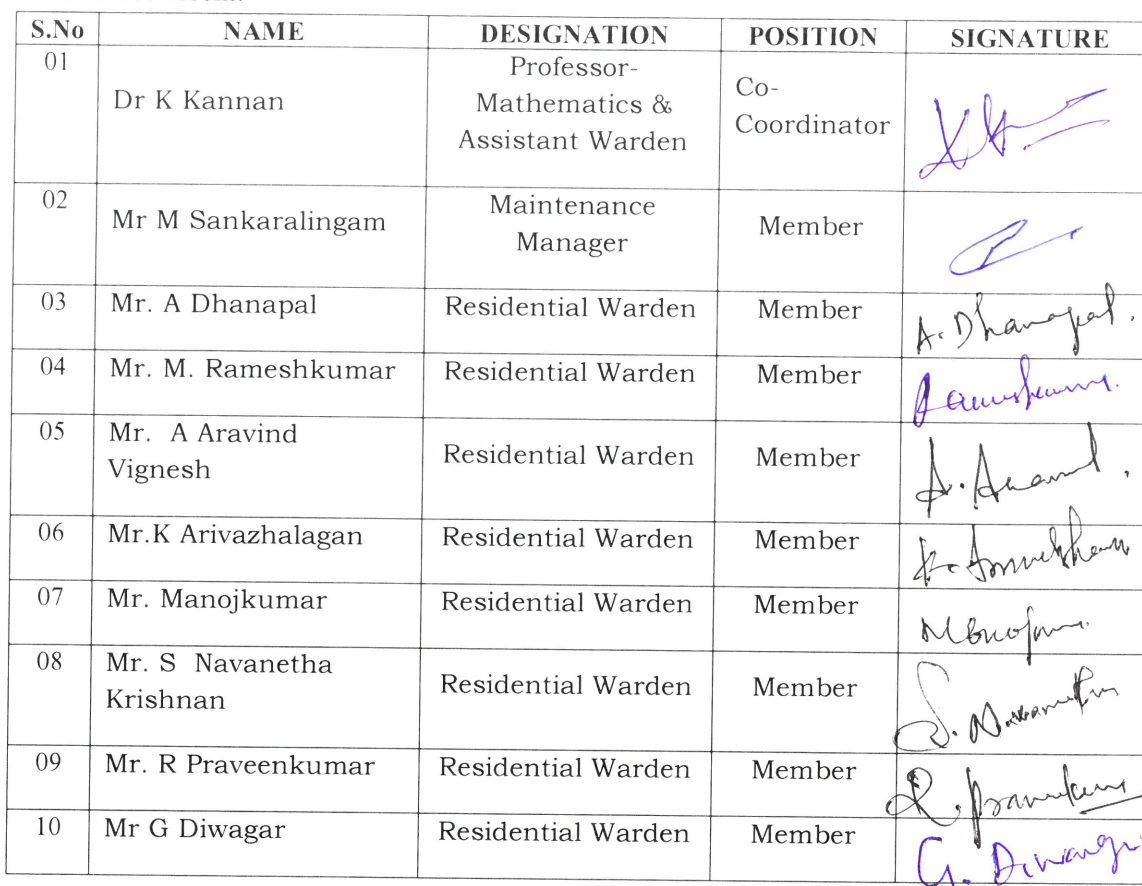 S.No NAME DESIGNATION POSITION SIGNATURE
01 Dr K Kannan Professor-
Mathematics &
Assistant Warden Co-
Coordinator
02 Mr M Sankaralingam Maintenance
Manager Member
03 Mr. A Dhanapal Residential Warden Member A. Dhanapal.
04 Mr. M. Rameshkumar Residential Warden Member
05 Mr. A Aravind
Vignesh Residential Warden Member
06 Mr.K Arivazhalagan Residential Warden Member
07 Mr. Manojkumar Residential Warden Member
08 Mr. S Navanetha
Krishnan Residential Warden Member
09 Mr. R Praveenkumar Residential Warden Member
10 Mr G Diwagar Residential Warden Member